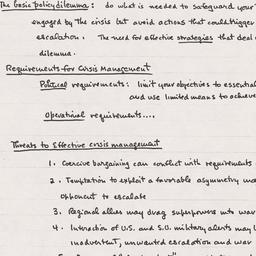 The basic policy dilemma: do what is needed to safeguard your
engaged by the crisis but avoid actions that could trigger
escalation. The need for effective strategies that deal
dilemma.
Requirements for Crisis Management
Political requirements: limit your objectives to essential
and use limited means to achieve
Operational requirements....
Threats to Effective crisis management
1. Coercive bargaining can conflict with requirements
2. Temptation to exploit a favorable asymmetry may
opponent to escalate
3. Regional allies may drag superpowers into war
4. Interaction of U.S. and S.U. military alerts may l
inadvertent, unwanted escalation and war